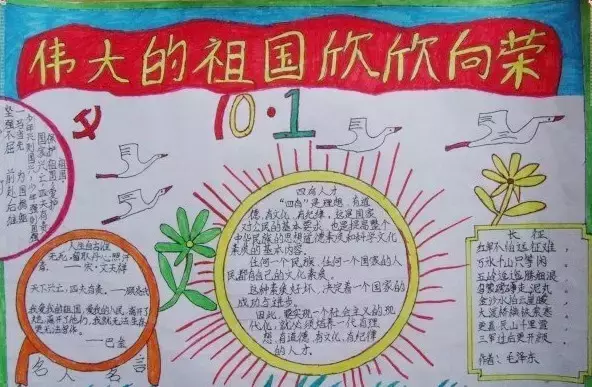 伟大的祖国欣欣向荣
10·1
坚强不屈 前赴后继
一马当先 为国捐躯
少年兴则国兴,少年强则国强
人生自古谁
无死,留取丹心照汗
青。 宋·文天祥
天下兴亡,匹夫有责。——顾炎武
我爱我的祖国,爱我的人民,离开了
她,离开了他们,我就无法生存,
更无法写作。
——巴金
名人名言
四有人才
"四有"是理想,有道
德,有文化,有纪律,这是国家
对公民的基本要求,也是提高整个
中华民族的思想道德素质和科学文化
素质的基本内容。
任何一个民族、任何一个国家的人
民都有自己的文化素质。
这种素质好坏,决定着一个国家的
成功与进步。
因此,要实现一个社会主义的现
代化,就必须培养一代有理
想,有道德,有文化,有纪律
的人才。
长征
红军不怕远征难,
万水千山只等闲。
五岭逶迤腾细浪,
乌蒙磅礴走泥丸。
金沙水拍云崖暖,
大渡桥横铁索寒。
更喜岷山千里雪,
三军过后尽开颜。
作者:毛泽东